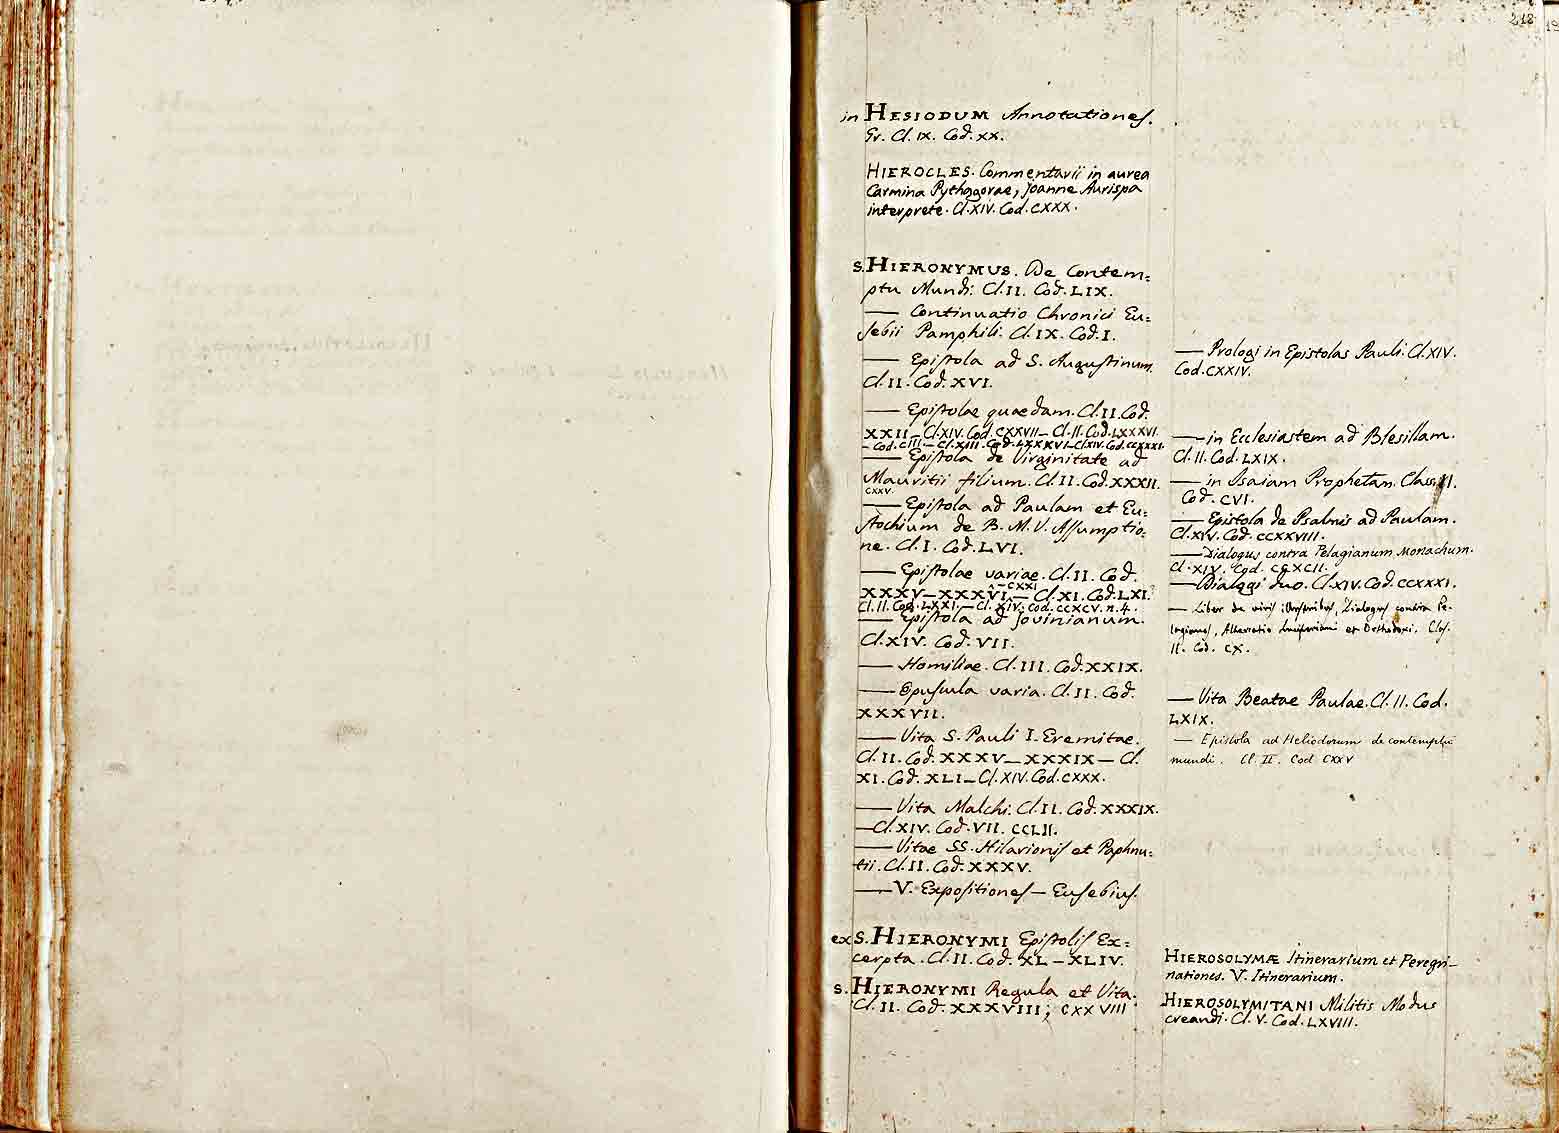 218
in HESIODUM Annotationes.
Gr. Cl. IX. Cod. XX.
HIEROCLES. Commentarii in aurea
Carmina Pythagorae, Joanne Aurispa
interprete. Cl. XIV. Cod. CXXX.
S. HIERONYMUS. De Contem=
ptu Mundi. Cl. II. Cod. LIX.
— Continuatio Chronici Eu=
sebii Pamphili. Cl. IX. Cod. I.
— Epistola ad S. Augustinum.
Cl. II. Cod. XVI.
— Epistolae quaedam. Cl. II. Cod.
XXII — Cl. XIV. Cod. CXXVII — Cl. II. Cod. LXXXVI.
— Cod. CIII. — Cl. XIII. Cod. LXXXVI — Cl. XIV. Cod. CCXXXI.
— Epistola de Virginitate ad
Mauritii filium. Cl. II. Cod. XXXII.
CXXV.
— Epistola ad Paulam et Eu=
stochium de B. M. V. Assumptio=
ne. Cl. I. Cod. LVI.
— Epistolae variae. Cl. II. Cod.
— CXXI
XXXV — XXXVI — Cl. XI. Cod. LXI.
Cl. II. Cod. LXXI. — Cl. XIV. Cod. CCXCV. n. 4.
— Epistola ad Jovinianum.
Cl. XIV. Cod. VII.
— Homiliae. Cl. III. Cod. XXIX.
— Opuscula varia. Cl. II. Cod.
XXXVII.
— Vita S. Pauli I. Eremitae.
Cl. II. Cod. XXXV — XXXIX — Cl.
XI. Cod. XLI — Cl. XIV. Cod. CXXX.
— Vita Malchi. Cl. II. Cod. XXXIX.
— Cl. XIV. Cod. VII. CCLII.
— Vitae SS. Hilarionis et Paphnu=
tii. Cl. II. Cod. XXXV.
— V. Expositiones — Eusebius.
ex S. HIERONYMI Epistolis Ex=
cerpta. Cl. II. Cod. XL — XLIV.
S. HIERONYMI Regula et Vita.
Cl. II. Cod. XXXVIII; CXXVIII
— Prologi in Epistolas Pauli. Cl. XIV.
Cod. CXXIV.
— in Ecclesiastem ad Blesillam.
Cl. II. Cod. LXIX.
— in Isaiam Prophetam. Class. II.
Cod. CVI.
— Epistola de Psalmis ad Paulam.
Cl. XIV. Cod. CCXXVIII.
— Dialogus contra Pelagianum Monachum.
Cl. XIV. Cod. CCXCII.
— Dialogi duo. Cl. XIV. Cod. CCXXXI.
— Liber de viris illustribus, Dialogus contra Pe-
lagianos, Altercatio Luciferiani et Orthodoxi. Clas.
II. Cod. CX.
— Vita Beatae Paulae. Cl. II. Cod.
LXIX.
— Epistola ad Heliodorum de contemptu
mundi. Cl. II. Cod CXXV
HIEROSOLYMÆ Itinerarium et Peregri-
nationes. V. Itinerarium.
HIEROSOLYMITANI Militis Modus
creandi. Cl. V. Cod. LXVIII.